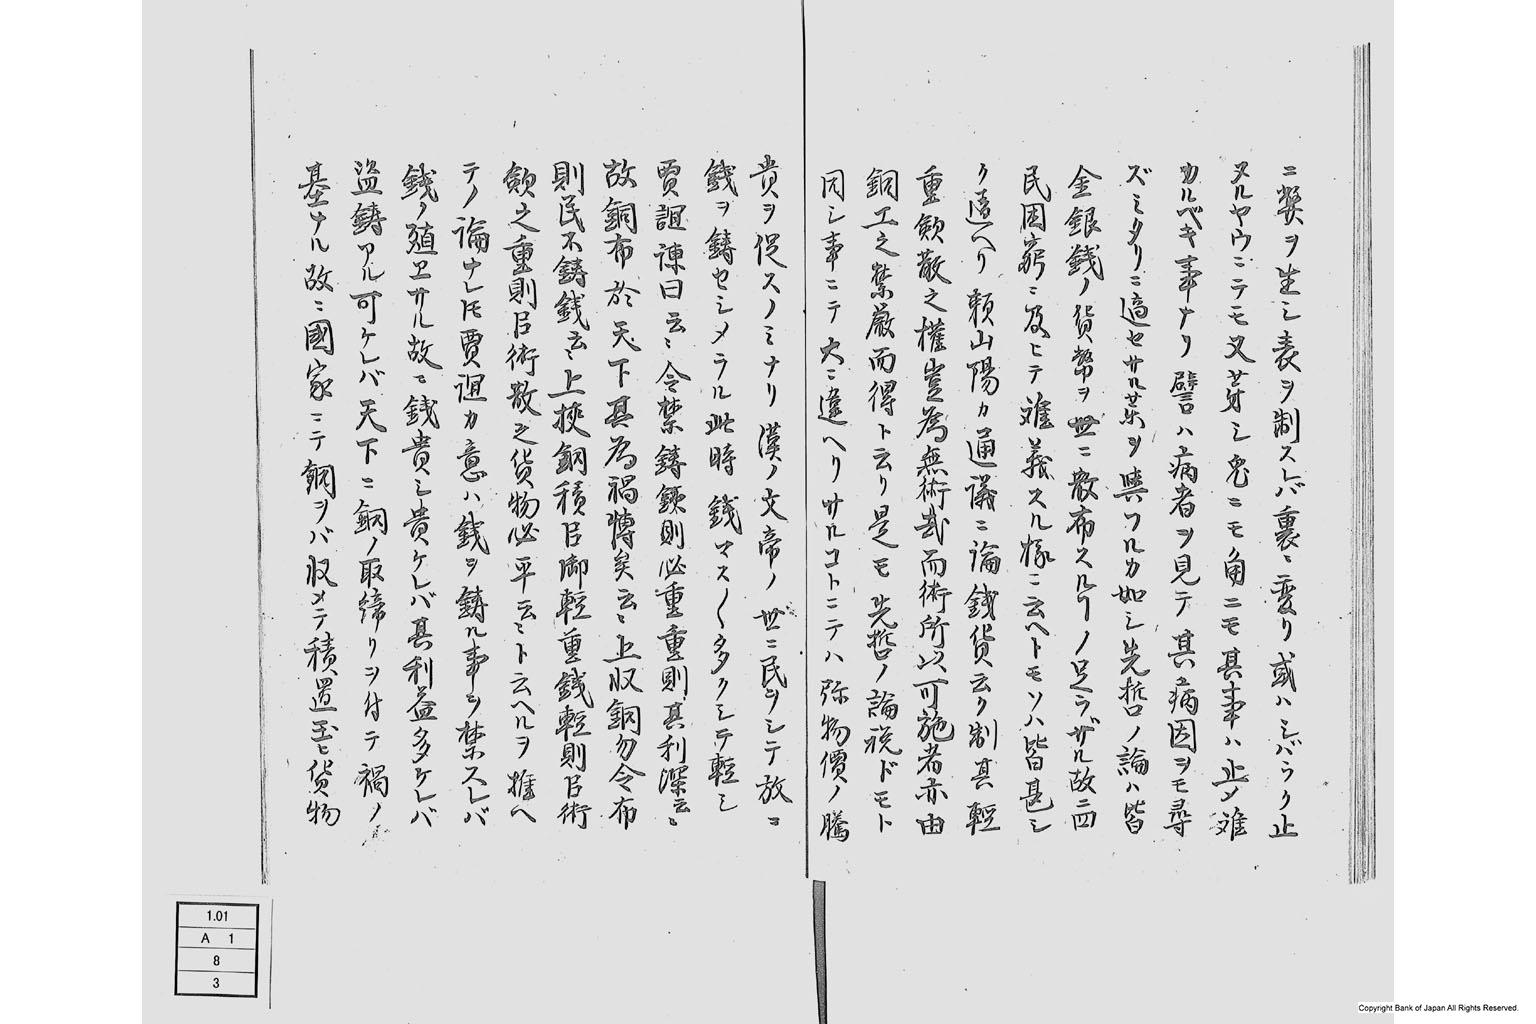 ニ弊ヲ生シ表ヲ制スレバ裏ニ変リ或ハシバラク止
ヌルヤウニテモ又芽シ兎ニモ角ニモ其事ハ止メ難
カルベキ事ナリ譬ハ病者ヲ見テ其病因ヲモ尋
ズミタリニ適セサル薬ヲ與フルカ如シ先哲ノ論ハ皆
金銀銭ノ貨幣ヲ世ニ散布スルヿノ足ラザル故ニ四
民困窮ニ及ヒテ難義スル様ニ云ヘトモソハ皆甚シ
ク違ヘリ頼山陽カ通議ニ論銭貨云ク制其軽
重斂散之權豈為無術哉而術所以可施者亦由
銅工之禁厳而得ト云リ是モ先哲ノ論説ドモト
同シ事ニテ大ニ違ヘリサルコトニテハ弥物價ノ騰
貴ヲ促スノミナリ漢ノ文帝ノ世ニ民ヲシテ放ニ
銭ヲ鋳セシメラル此時銭マス〱多クシテ軽シ
賈誼諌曰云〻令禁鋳銭則必重重則其利深云〻
故銅布於天下其為禍博矣云〻上収銅勿令布
則民不鋳銭云〻上挾銅積㠯御軽重銭軽則㠯術
斂之重則㠯術散之貨物必平云〻ト云ヘルヲ推ヘ
テノ論ナレ𪜈賈誼カ意ハ銭ヲ鋳ル事ヲ禁スレバ
銭ノ殖ヱサル故ニ銭貴シ貴ケレバ其利益多ケレバ
盗鋳アル可ケレバ天下ニ銅ノ取締リヲ付テ禍ノ
基ナル故ニ國家ニテ銅ヲバ収メテ積置玉ヒ貨物
1.01
A 1
8
3
Copyright Bank of Japan All Rights Reserved.